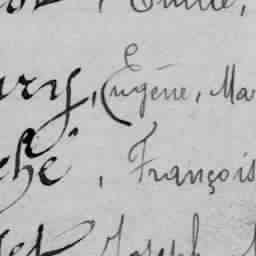 Emile,
ry, Eugène, Ma
ché, François
et Joseph